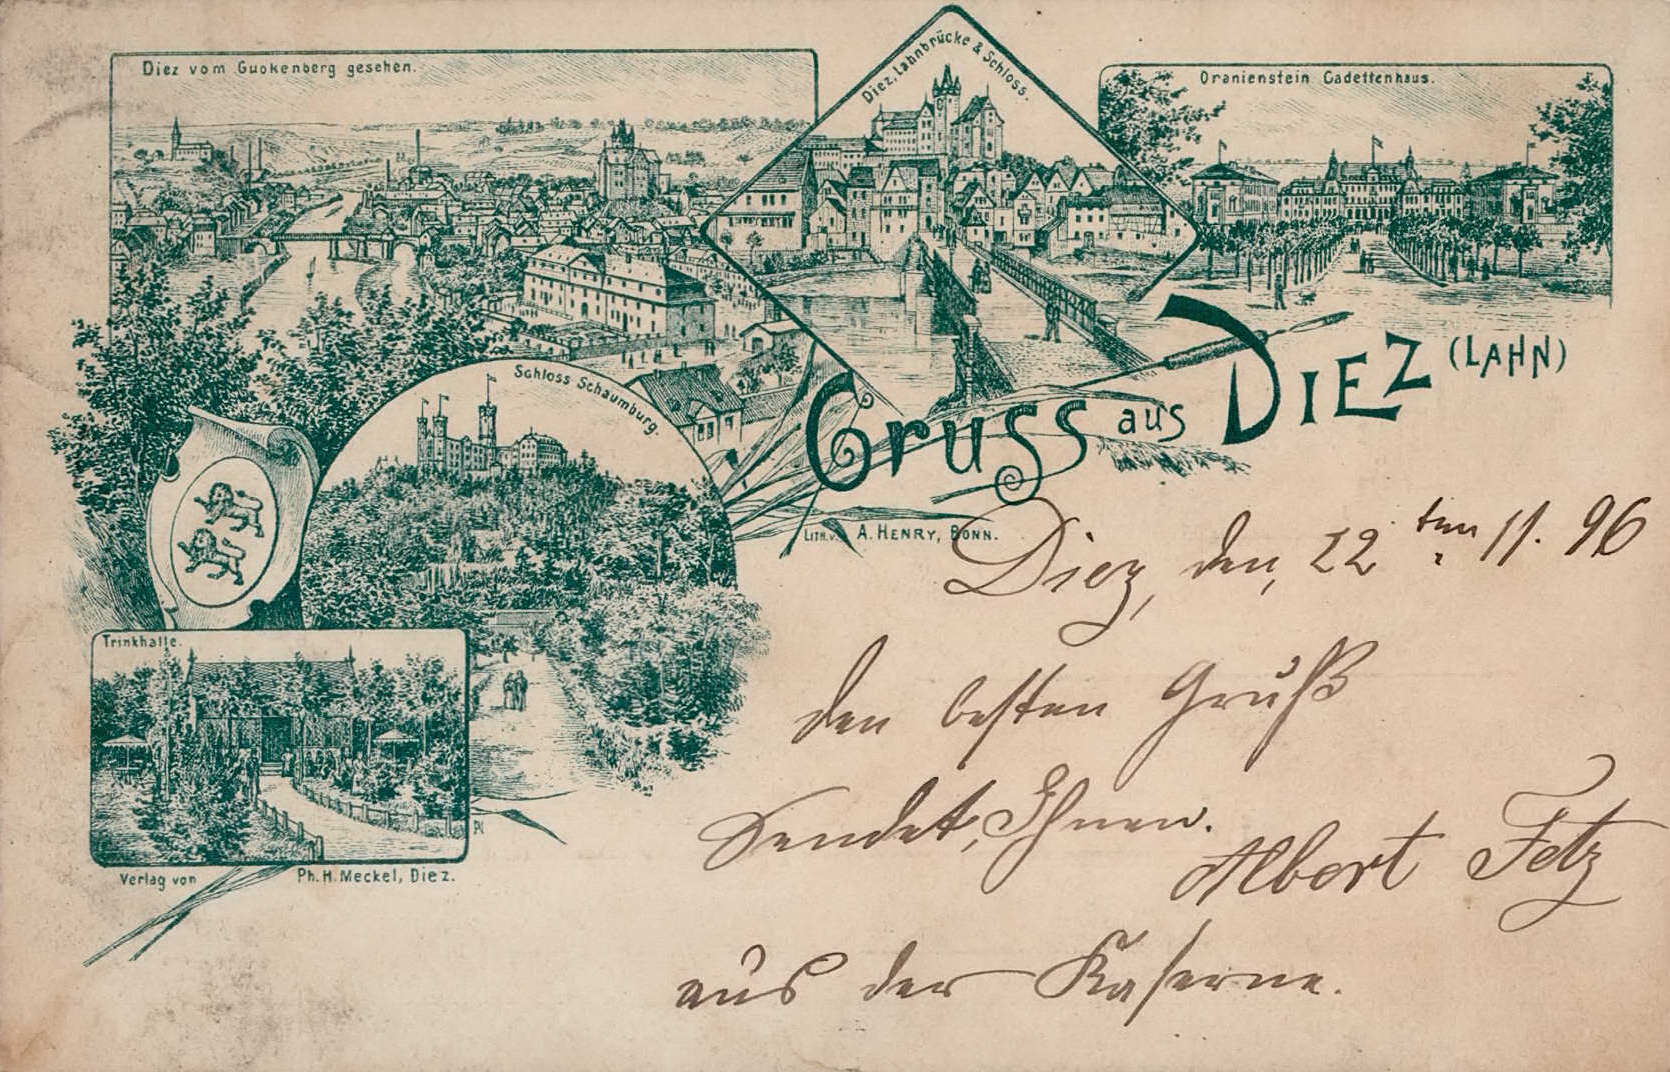 Diez vom Guckenberg gesehen.
Diez, Lahnbrücke & Schloss.
Oranienstein Cadettenhaus.
Schloss Schaumburg.
Gruss aus DIEZ (LAHN)
LITH. v. A. HENRY, BONN.
Trinkhalle.
Verlag von Ph. H. Meckel, Diez.
Diez, den, 22ten 11. 96
den besten Gruß
Sendet, Ihnen.
Albert Fetz
aus der Kaserne.